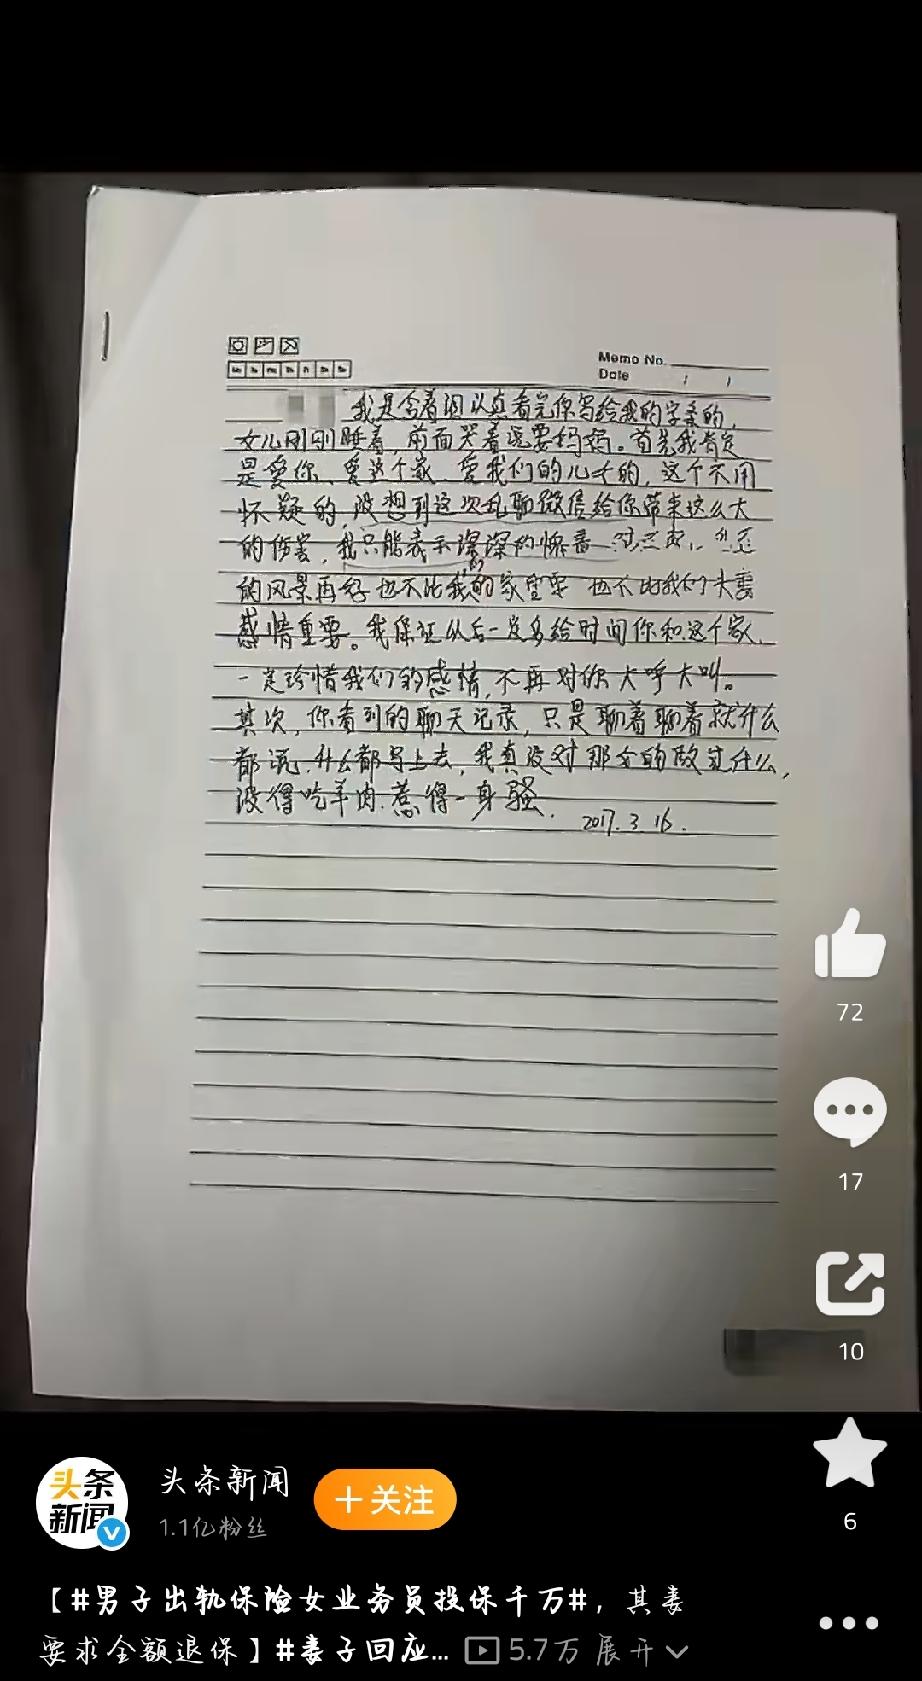 Memo No.
Date / /
我是含着泪认真看完你写给我的字条的,
女儿刚刚睡着,前面哭着说要妈妈。首先我肯定
是爱你、爱这个家、爱我们的儿女的,这个不用
怀疑的,没想到这次乱聊微信给你带来这么大
的伤害,我只能表示深深的懊悔
的风景再好也不比我的家重要 也不比我们夫妻
感情重要。我保证从后一定多给时间你和这个家、
一定珍惜我们的感情,不再对你大呼大叫。
其次,你看到的聊天记录,只是聊着聊着就什么
都说,什么都写上去,我真没对那女的做过什么,
没得吃羊肉.惹得一身骚.
2017.3.16.
72
17
10
6
头条新闻
头条新闻
1.1亿粉丝
+关注
【#男子出轨保险女业务员投保千万#,其妻
要求全额退保】#妻子回应... 5.7万 展开